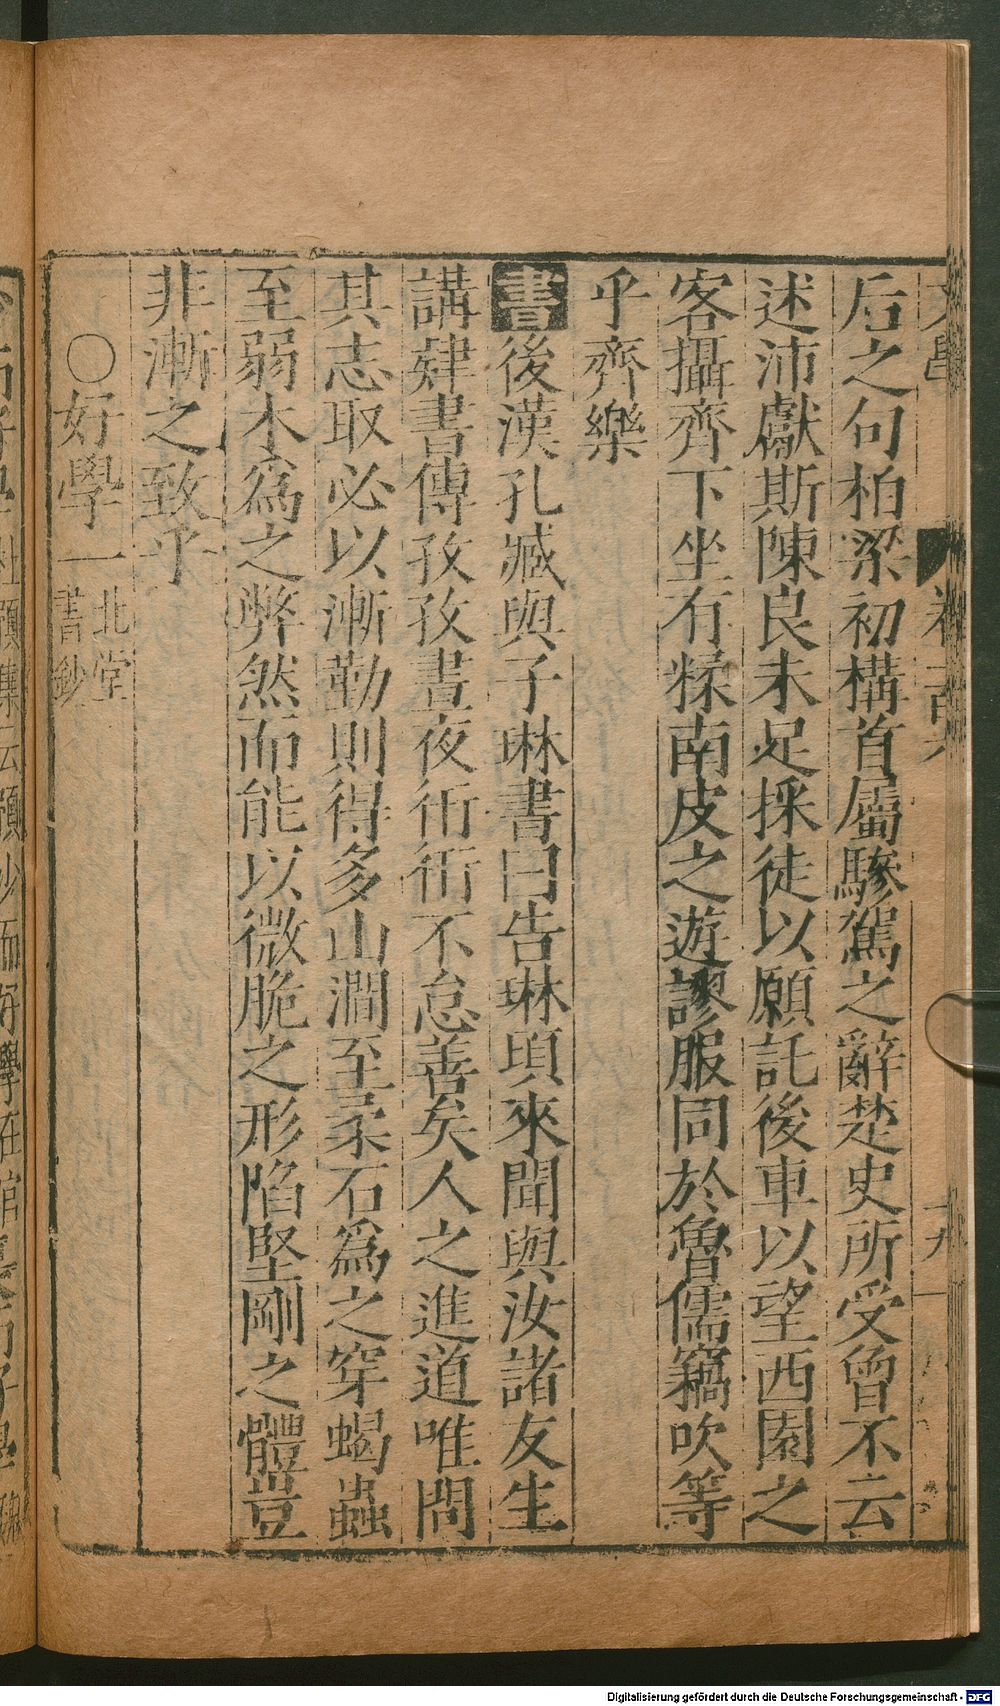 后之句柏梁初構首屬驂駕之辭楚史所受曾不云
述沛獻斯陳良未足採徒以願託後車以望西園之
客攝齊下坐有糅南皮之遊謬服同於魯儒竊吹等
乎齊樂
書後漢孔臧與子琳書曰告琳頃來聞與汝諸友生
講肄書傳孜孜晝夜衎衎不怠善矣人之進道唯問
其志取必以漸勤則得多山澗至柔石爲之穿蝎蟲
至弱木爲之弊然而能以微脆之形陷堅剛之體豈
非漸之致乎
○好學一北堂書鈔
Digitalisierung gefördert durch die Deutsche Forschungsgemeinschaft - DFG